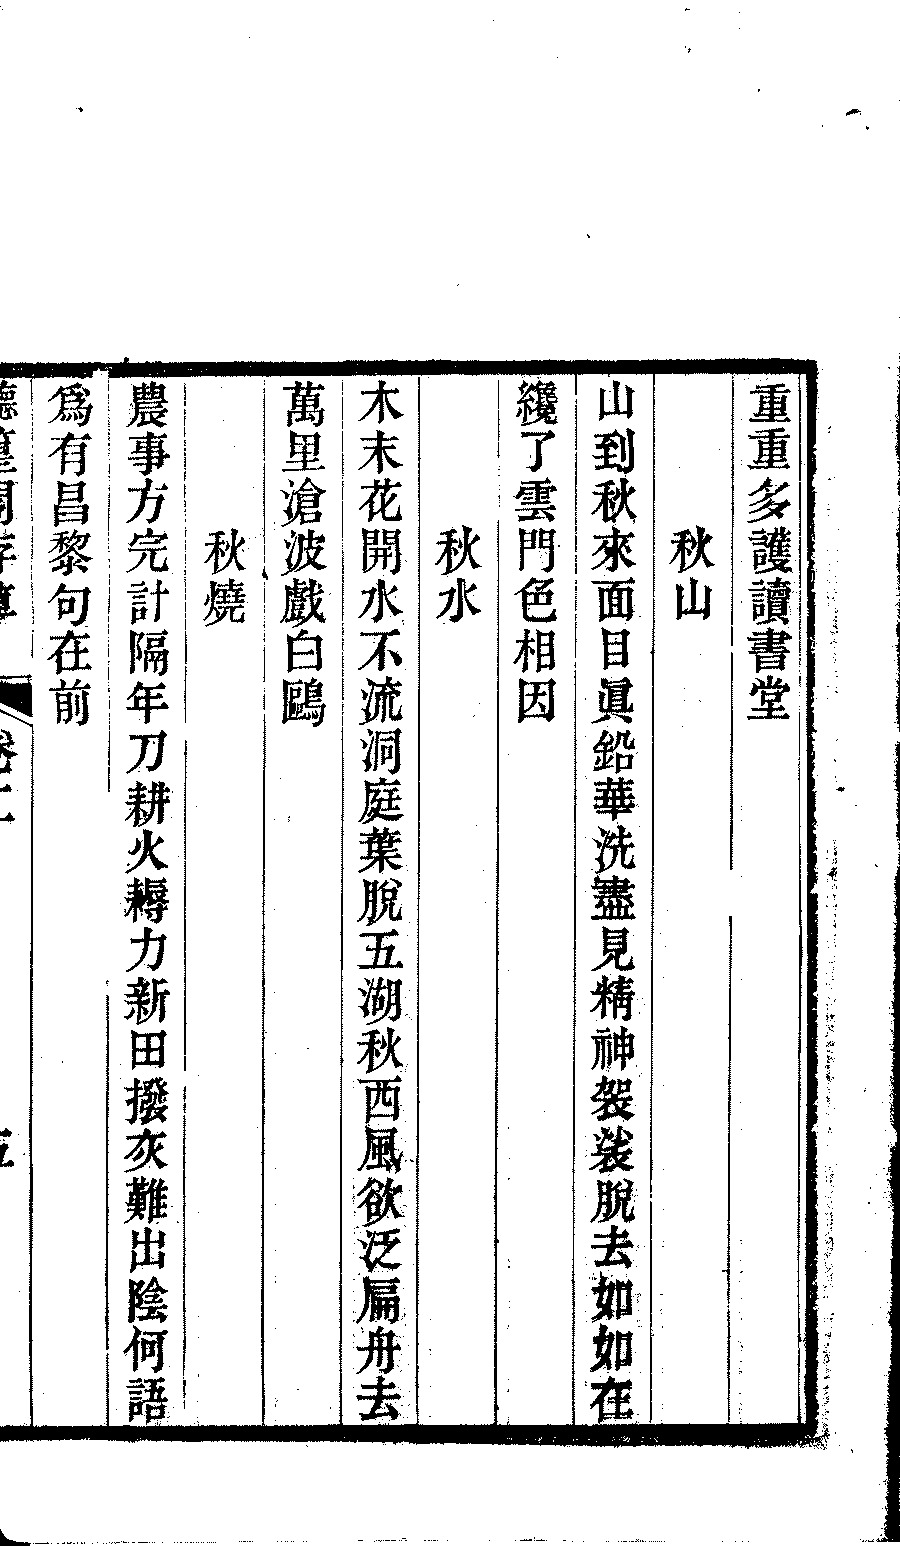 重重多護讀書堂
秋山
山到秋來面目眞鉛華洗盡見精神袈裟脫去如如在
纔了雲門色相因
秋水
木末花開水不流洞庭葉脫五湖秋西風欲泛扁舟去
萬里滄波戲白鷗
秋燒
農事方完計隔年刀耕火耨力新田撥灰難出陰何語
爲有昌黎句在前